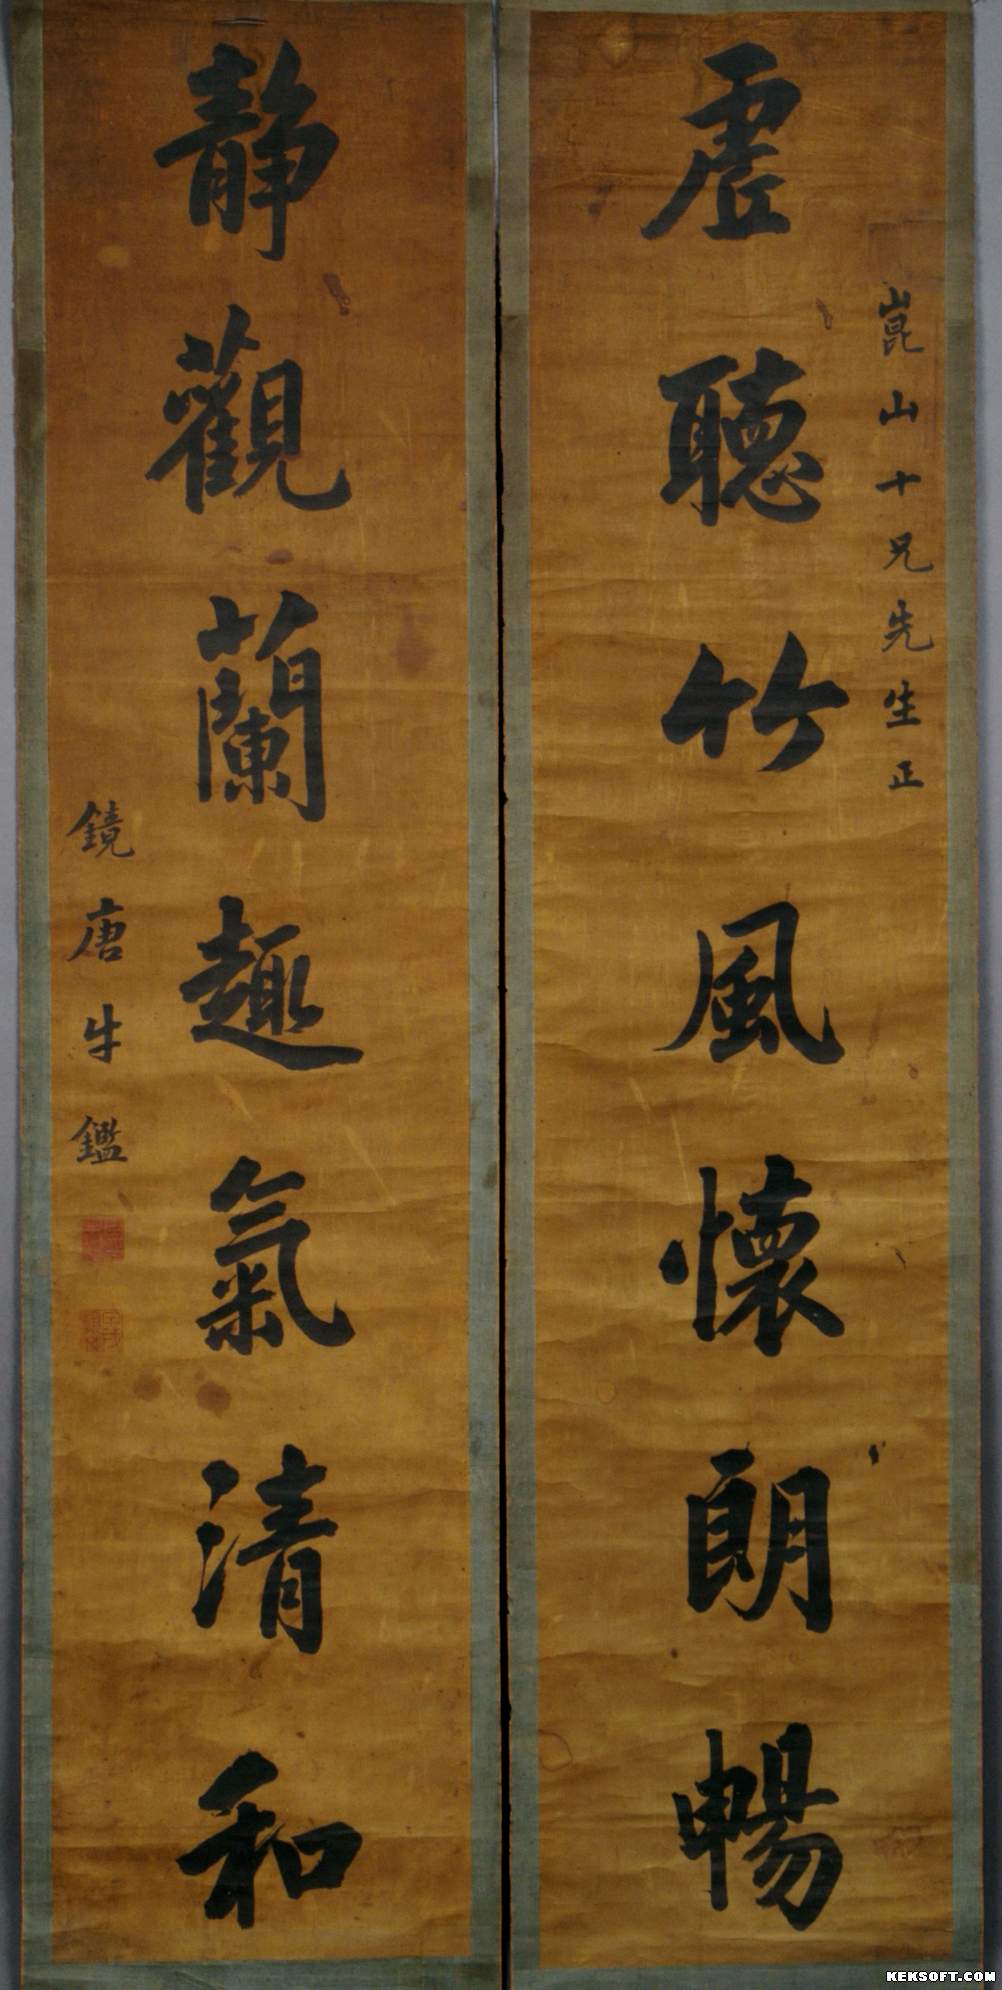 崑山十兄先生正
虛聽竹風懷朗暢
靜觀蘭趣氣清和
鏡唐牛鑑
KEKSOFT.COM